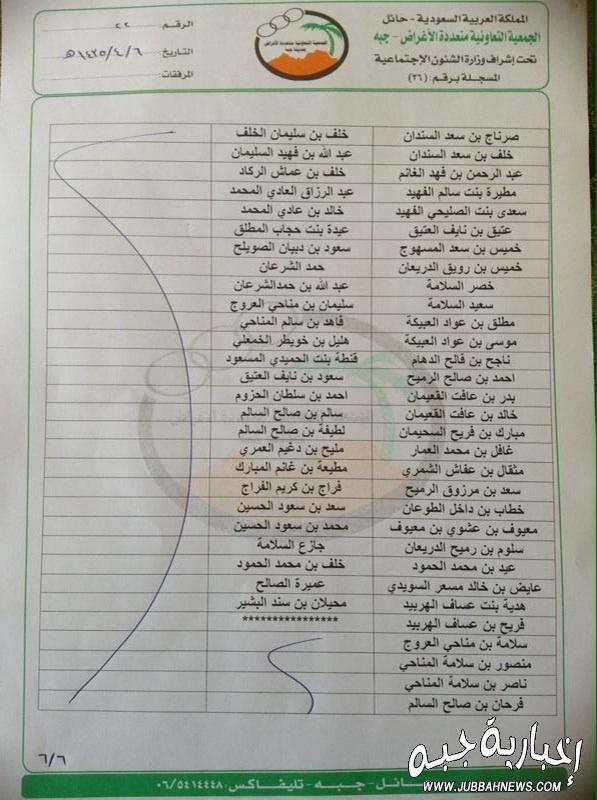 المملكة العربية السعودية - حائل
الجمعية التعاونية متعددة الأغراض - جبه
تحت إشراف وزارة الشئون الإجتماعية
المسجلة برقم: (٢٦)
الجمعية التعاونية متعددة الأغراض
بمدينة جبة
الرقـم : ٢٢
التاريخ : ١٤٣٥/٤/٦هـ
المرفقات:
صرناج بن سعد السندان خلف بن سليمان الخلف
خلف بن سعد السندان عبد الله بن فهيد السليمان
عبد الرحمن بن فهد الغانم خلف بن عماش الركاد
مطيرة بنت سالم الفهيد عبد الرزاق العادي المحمد
سعدى بنت الصليحي الفهيد خالد بن عادي المحمد
عتيق بن نايف العتيق عيدة بنت حجاب المطلق
خميس بن سعد المسهوج سعود بن دبيان الصويلح
خميس بن رويق الدريعان حمد الشرعان
خضر السلامة عبد الله بن حمدالشرعان
سعيد السلامة سليمان بن مناحي العروج
مطلق بن عواد العبيكة فاهد بن سالم المناحي
موسى بن عواد العبيكة هليل بن خويطر الخمعلي
ناجح بن فالح الدهام قنطة بنت الحميدي المسعود
احمد بن صالح الرميح سعود بن نايف العتيق
بدر بن عافت القعيمان احمد بن سلطان الحزوم
خالد بن عافت القعيمان سالم بن صالح السالم
مبارك بن فريح السحيمان لطيفة بن صالح السالم
غافل بن محمد العمار مليح بن دغيم العمري
مثقال بن عفاش الشمري مطيعة بن غانم المبارك
سعد بن مرزوق الرميح فراج بن كريم الفراج
خطاب بن داخل الطوعان سعد بن سعود الحسين
معيوف بن عشوي بن معيوف محمد بن سعود الحسين
سلوم بن رميح الدريعان جازع السلامة
عيد بن محمد الحمود خلف بن محمد الحمود
عايض بن خالد مسعر السويدي عميرة الصالح
هدية بنت عساف الهربيد محيلان بن سند البشير
فريح بن عساف الهربيد ****************
سلامة بن مناحي العروج
منصور بن سلامة المناحي
ناصر بن سلامة المناحي
فرحان بن صالح السالم
٦/٦
حائل - جبه - تليفاكس: ٠٦/٥٤١٤٤٤٨
إخبارية جبه
WWW.JUBBAHNEWS.COM